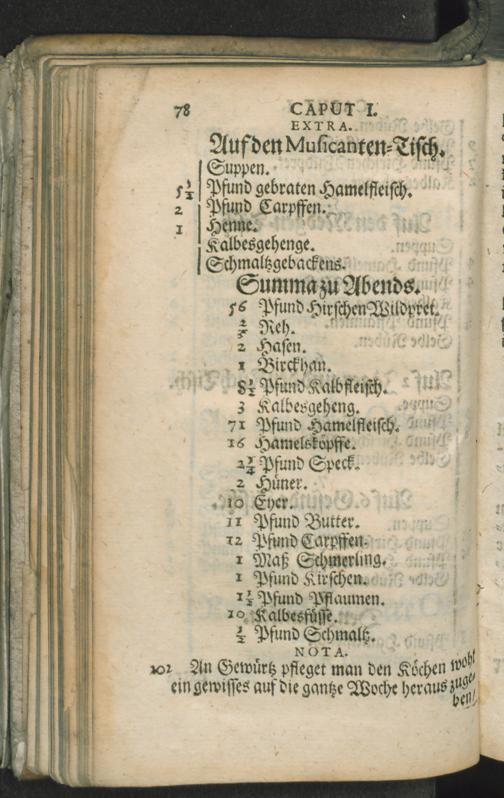 78 CAPUT I.
EXTRA.
Auf den Musicanten-Tisch.
Suppen.
5½ Pfund gebraten Hamelfleisch.
2 Pfund Carpffen.
1 Henne.
Kalbesgehenge.
Schmaltzgebackens.
Summa zu Abends.
56 Pfund Hirschen Wildpret.
Reh.
2 Hasen.
1 Birckhan.
8½ Pfund Kalbfleisch.
3 Kalbesgeheng.
71 Pfund Hamelfleisch.
16 Hamelsköpffe.
2¼ Pfund Speck.
2 Hüner.
10 Eyer.
11 Pfund Butter.
12 Pfund Carpffen.
1 Maß Schmerling.
1 Pfund Kirschen.
1½ Pfund Pflaumen.
10 Kalbesfüsse.
½ Pfund Schmaltz.
NOTA.
102 An Gewürtz pfleget man den Köchen wohl
ein gewisses auf die gantze Woche heraus zuge-
ben/